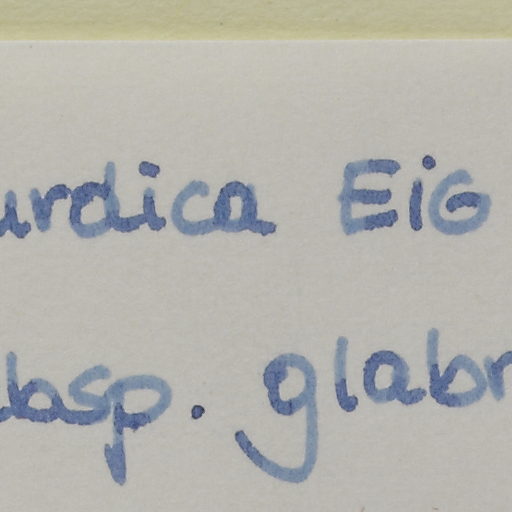 urdica EiG
bsp. glabr